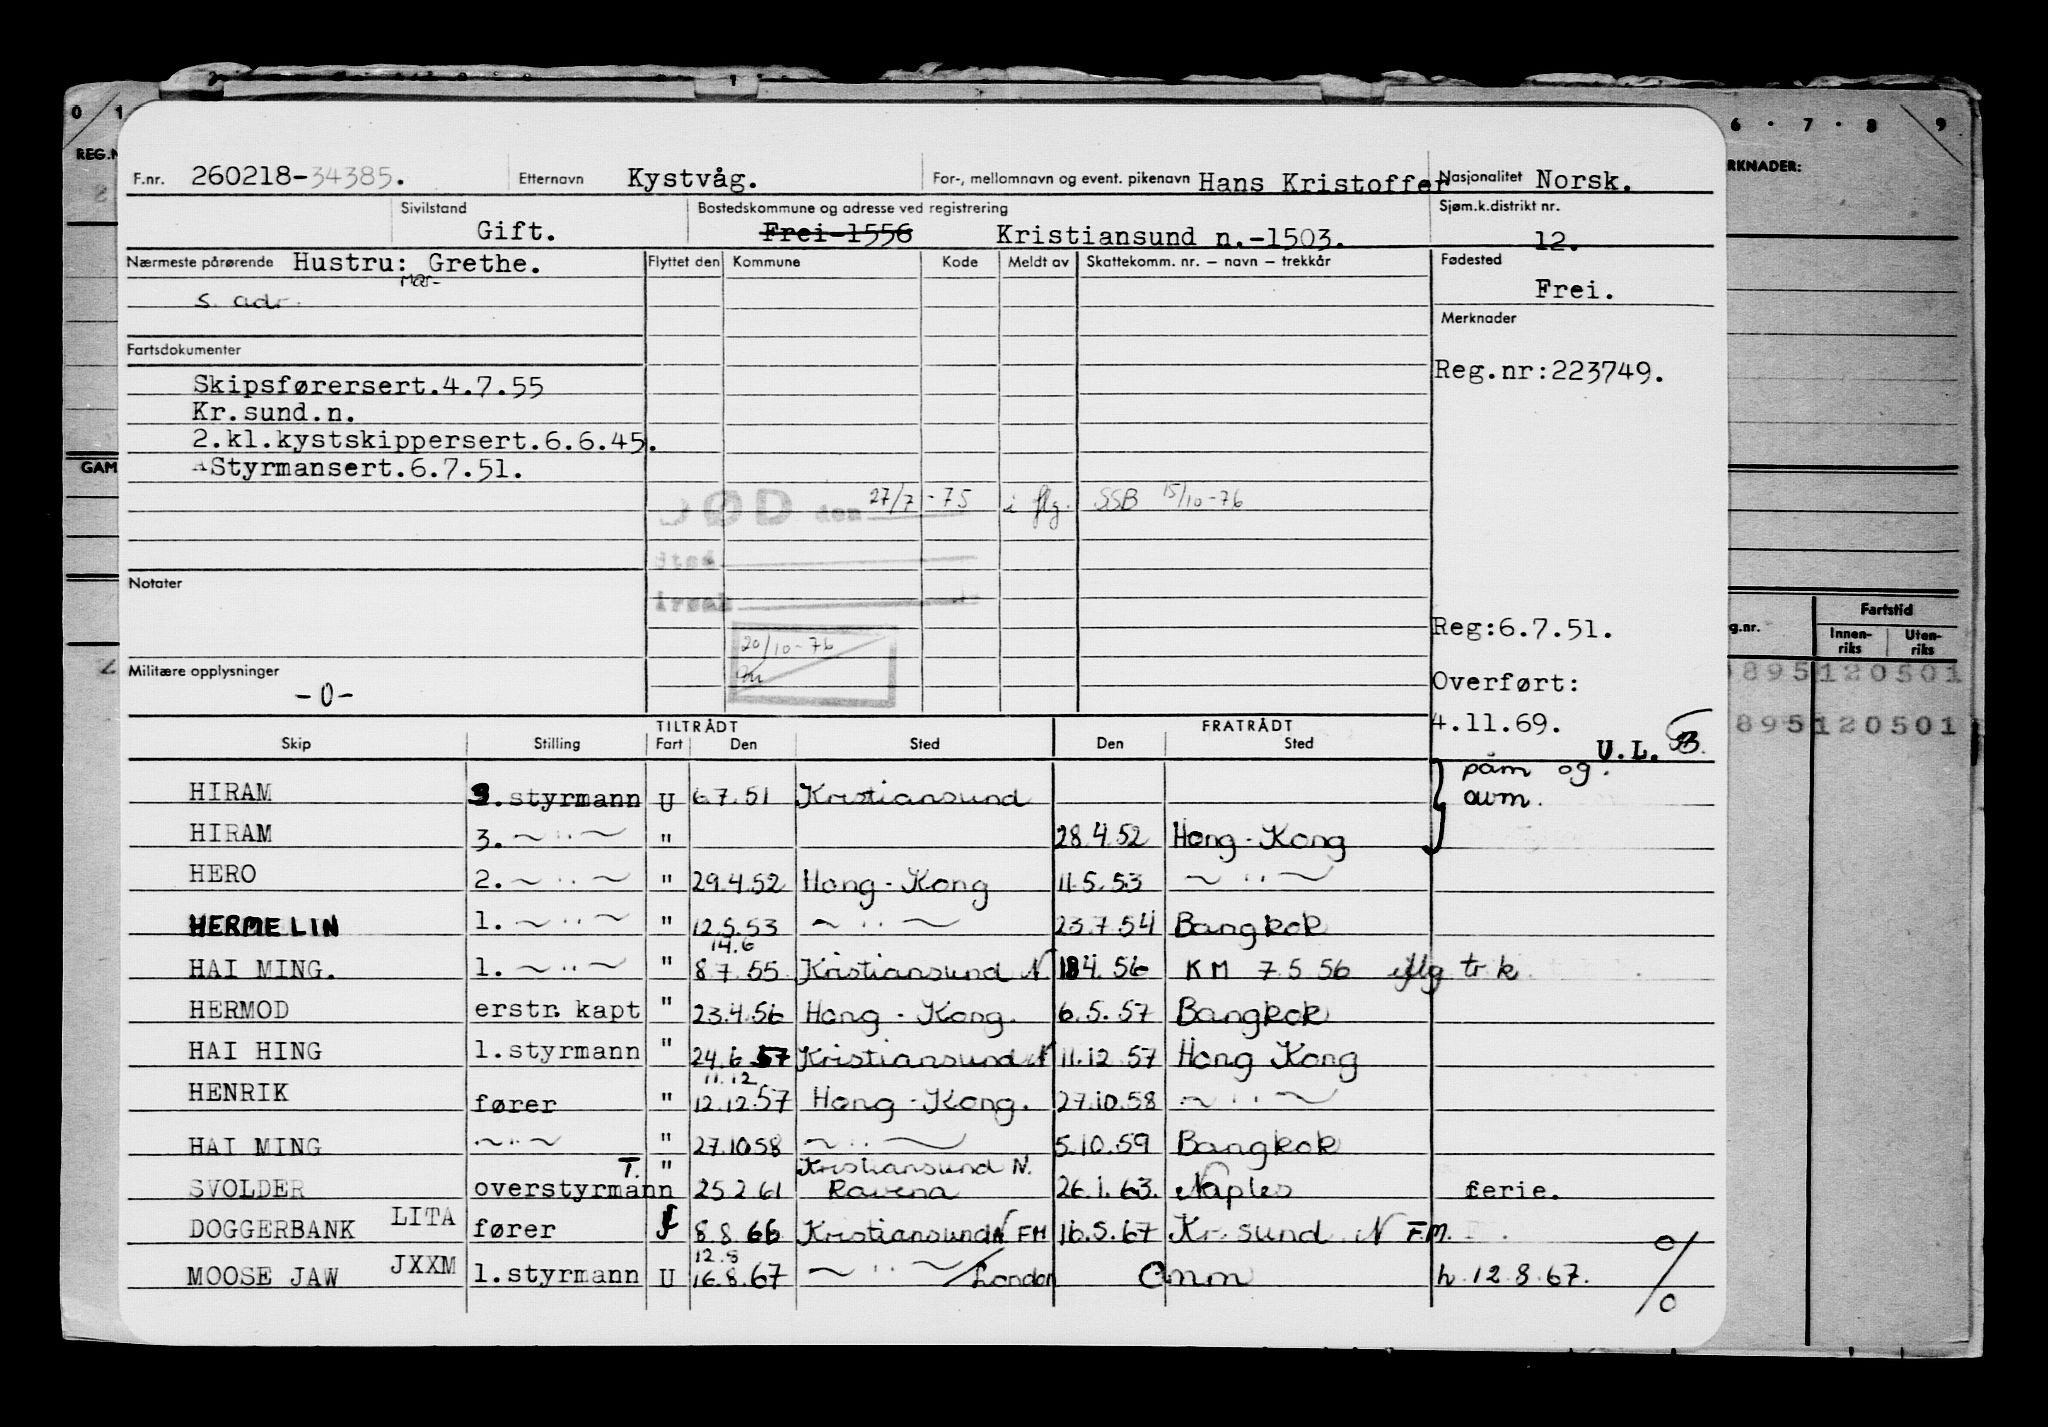 0 1 2 1 6 · 7 · 8 9
REG.N RKNADER:
F.nr. 260218-34385. Etternavn Kystvåg. For-, mellomnavn og event. pikenavn Hans Kristoffer Nasjonalitet Norsk.
Sivilstand Bostedskommune og adresse ved registrering Sjøm.k.distrikt nr.
Gift. Frei-1556 Kristiansund n.-1503. 12.
Nærmeste pårørende Hustru: Grethe. Flyttet den Kommune Kode Meldt av Skattekomm. nr. – navn – trekkår Fødested
s. adr. Frei.
Merknader
Fartsdokumenter
Reg.nr:223749.
Skipsførersert.4.7.55
Kr.sund.n.
2.kl.kystskippersert.6.6.45.
GAM
Styrmansert.6.7.51.
DØD den 27/7 - 75 i flg. SSB 15/10-76
Notater
Reg:6.7.51.
g.nr. Fartstid
Innen-riks Uten-riks
20/10-76
Militære opplysninger
-0-
Overført:
895120501
4.11.69.
895120501
TILTRÅDT FRATRÅDT
Skip Stilling Fart Den Sted Den Sted
U.L. B.
påm og.
HIRAM 3.styrmann U 6.7.51 Kristiansund avm.
HIRAM 3. ~ ·· ~ " 28.4.52 Hong-Kong
HERO 2. ~ ·· ~ " 29.4.52 Hong-Kong 11.5.53 ~ ·· ~
HERMELIN 1. ~ ·· ~ " 12.5.53 ~ ·· ~ 23.7.54 Bangkok
14.6
HAI MING. 1. ~ ·· ~ " 8.7.55 Kristiansund N 18.4.56 KM 7.5.56 iflg trk
HERMOD erstr. kapt " 23.4.56 Hong-Kong. 6.5.57 Bangkok
HAI HING 1.styrmann " 24.6.57 Kristiansund N 11.12.57 Hong Kong
11.12
HENRIK fører " 12.12.57 Hong-Kong. 27.10.58 ~ ·· ~
HAI MING ~ ·· ~ " 27.10.58 ~ ·· ~ 5.10.59 Bangkok
T. " Kristiansund N.
SVOLDER overstyrmann 25.2.61 Ravena 26.1.63. Naples ferie.
DOGGERBANK LITA fører f 8.8.66 Kristiansund N FM 16.5.67 Kr.sund N FM.
12.8
MOOSE JAW JXXM 1.styrmann U 16.8.67 ~ ·· ~ /London h. 12.8.67. %